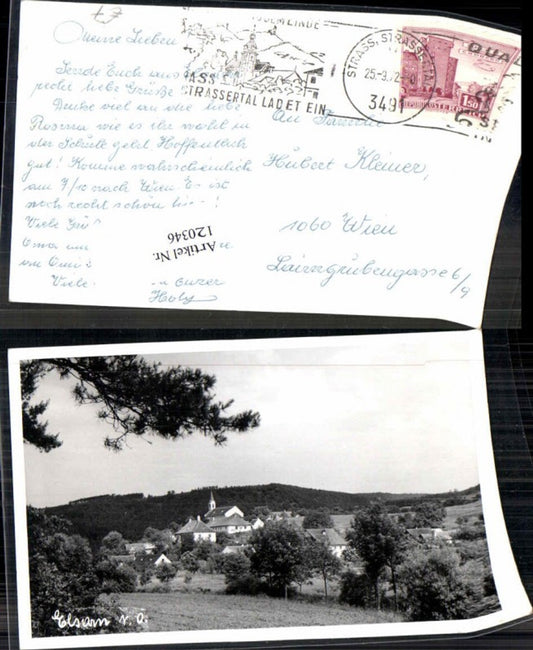 Meine Lieben
Sende Euch aus
recht liebe Grüße
Denke viel an die liebe
wie es ihr wohl in
der Schule geht Hoffentlich
gut! Komme wahrscheinlich
am 7/10 nach Wien. Es ist
noch recht schön hier!
Viele
Oma
Viele
Artikel Nr.
120346
GEMEINDE
STRASSERTAL LADET EIN
STRASS, STRASSERTAL
25.-9.72
3491
REPUBLIK ÖSTERREICH
1.50
An Familie
Hubert Kleiner,
1060 Wien
Laimgrubengasse 6/9
Elsarn N.Ö.